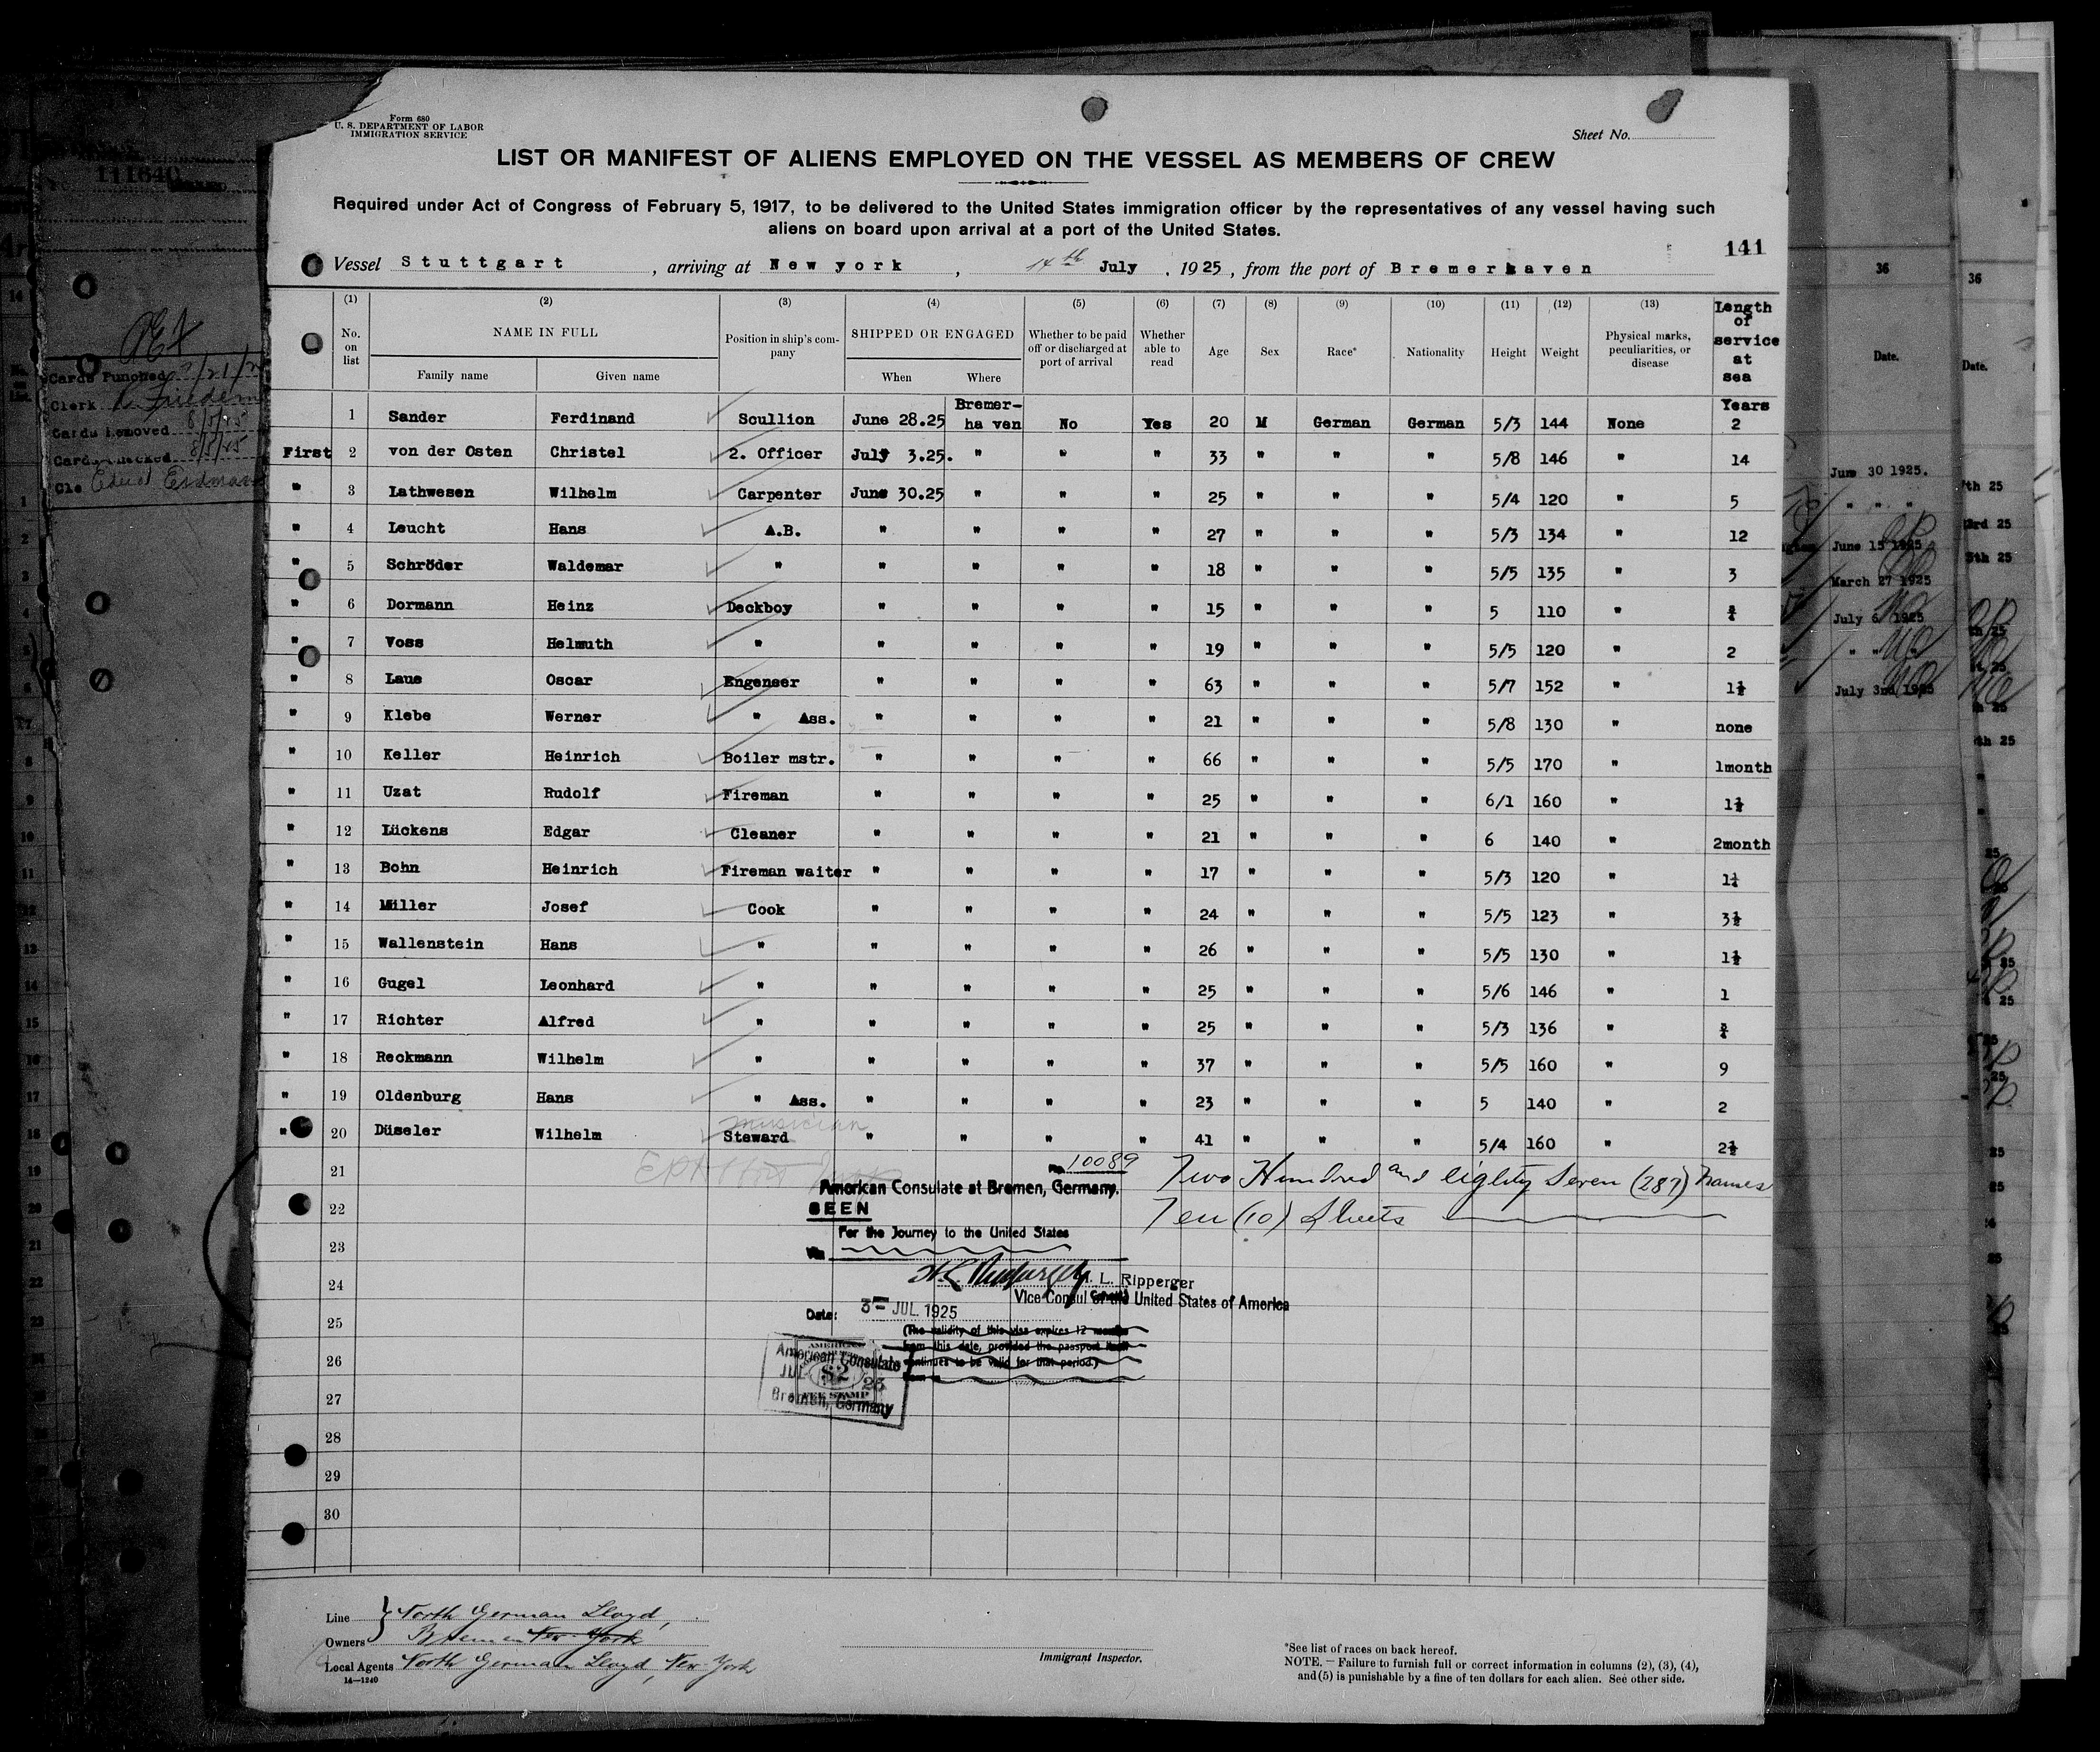 Form 680
U. S. DEPARTMENT OF LABOR
IMMIGRATION SERVICE
Sheet No.
LIST OR MANIFEST OF ALIENS EMPLOYED ON THE VESSEL AS MEMBERS OF CREW
Required under Act of Congress of February 5, 1917, to be delivered to the United States immigration officer by the representatives of any vessel having such
aliens on board upon arrival at a port of the United States.
141
Vessel Stuttgart, arriving at New york, 14th July, 1925, from the port of Bremerhaven
(1) (2) (3) (4) (5) (6) (7) (8) (9) (10) (11) (12) (13) Length of service at sea
No. on list NAME IN FULL Position in ship's company SHIPPED OR ENGAGED Whether to be paid off or discharged at port of arrival Whether able to read Age Sex Race* Nationality Height Weight Physical marks, peculiarities, or disease
Family name Given name When Where
1 Sander Ferdinand Scullion June 28.25 Bremerhaven No Yes 20 M German German 5/3 144 None Years 2
First 2 von der Osten Christel 2. Officer July 3.25. " " " 33 " " " 5/8 146 " 14
" 3 Lathwesen Wilhelm Carpenter June 30.25 " " " 25 " " " 5/4 120 " 5
" 4 Leucht Hans A.B. " " " " 27 " " " 5/3 134 " 12
" 5 Schröder Waldemar " " " " " 18 " " " 5/5 135 " 3
" 6 Dormann Heinz Deckboy " " " " 15 " " " 5 110 "
" 7 Voss Helmuth " " " " " 19 " " " 5/5 120 " 2
" 8 Laue Oscar Engeneer " " " " 63 " " " 5/7 152 " 1½
" 9 Klebe Werner " Ass. " " " " 21 " " " 5/8 130 " none
" 10 Keller Heinrich Boiler mstr. " " " " 66 " " " 5/5 170 " 1month
" 11 Uzat Rudolf Fireman " " " " 25 " " " 6/1 160 " 1½
" 12 Lückens Edgar Cleaner " " " " 21 " " " 6 140 " 2month
" 13 Bohn Heinrich Fireman waiter " " " " 17 " " " 5/3 120 " 1¼
" 14 Müller Josef Cook " " " " 24 " " " 5/5 123 " 3½
" 15 Wallenstein Hans " " " " " 26 " " " 5/5 130 " 1½
" 16 Gugel Leonhard " " " " " 25 " " " 5/6 146 " 1
" 17 Richter Alfred " " " " " 25 " " " 5/3 136 "
" 18 Reckmann Wilhelm " " " " " 37 " " " 5/5 160 " 9
" 19 Oldenburg Hans " Ass. " " " " 23 " " " 5 140 " 2
musician
" 20 Düseler Wilhelm Steward " " " " 41 " " " 5/4 160 " 2½
21
22
23
24
25
26
27
28
29
30
No 10089
American Consulate at Bremen, Germany.
SEEN
For the Journey to the United States
Via
H. L. Ripperger
Vice Consul of the United States of America
Date: 3 - JUL. 1925
(The validity of this visa expires 12 months
from this date, provided the passport itself
continues to be valid for that period.)
American Consulate
JUL 25
$2
FEE STAMP
Bremen, Germany
Two Hundred and eighty Seven (287) Names
Ten (10) Sheets
Line North German Lloyd,
Owners Bremen New-York
Local Agents North German Lloyd, New-York
14—1240
Immigrant Inspector.
*See list of races on back hereof.
NOTE. — Failure to furnish full or correct information in columns (2), (3), (4),
and (5) is punishable by a fine of ten dollars for each alien. See other side.
111640
Cards Punched
Clerk
Cards Removed 8/5/25
8/5/25
36
Date.
June 30 1925.
" " "
June 15 1925
March 27 1925
July 6 1925
July 3rd 1925
36
Date.